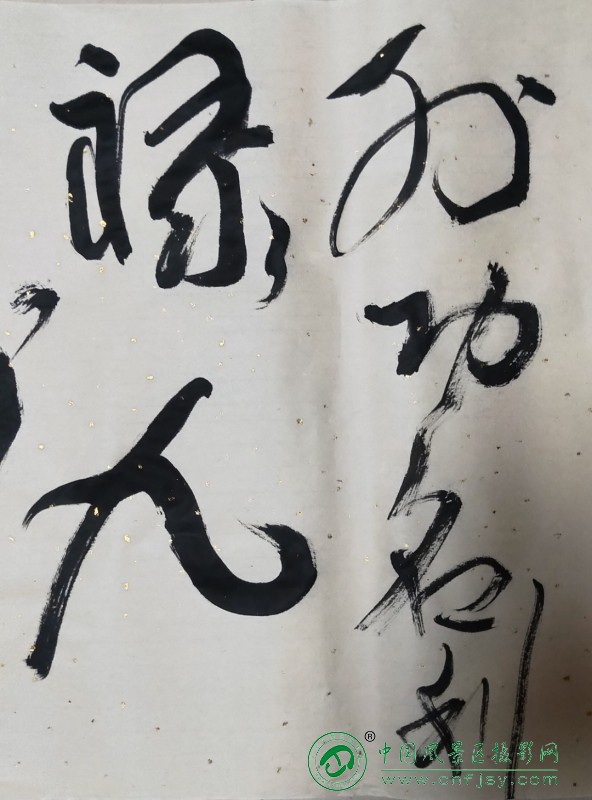 外功名利
禄人
®中国风景区摄影网
www.cnfjsy.com